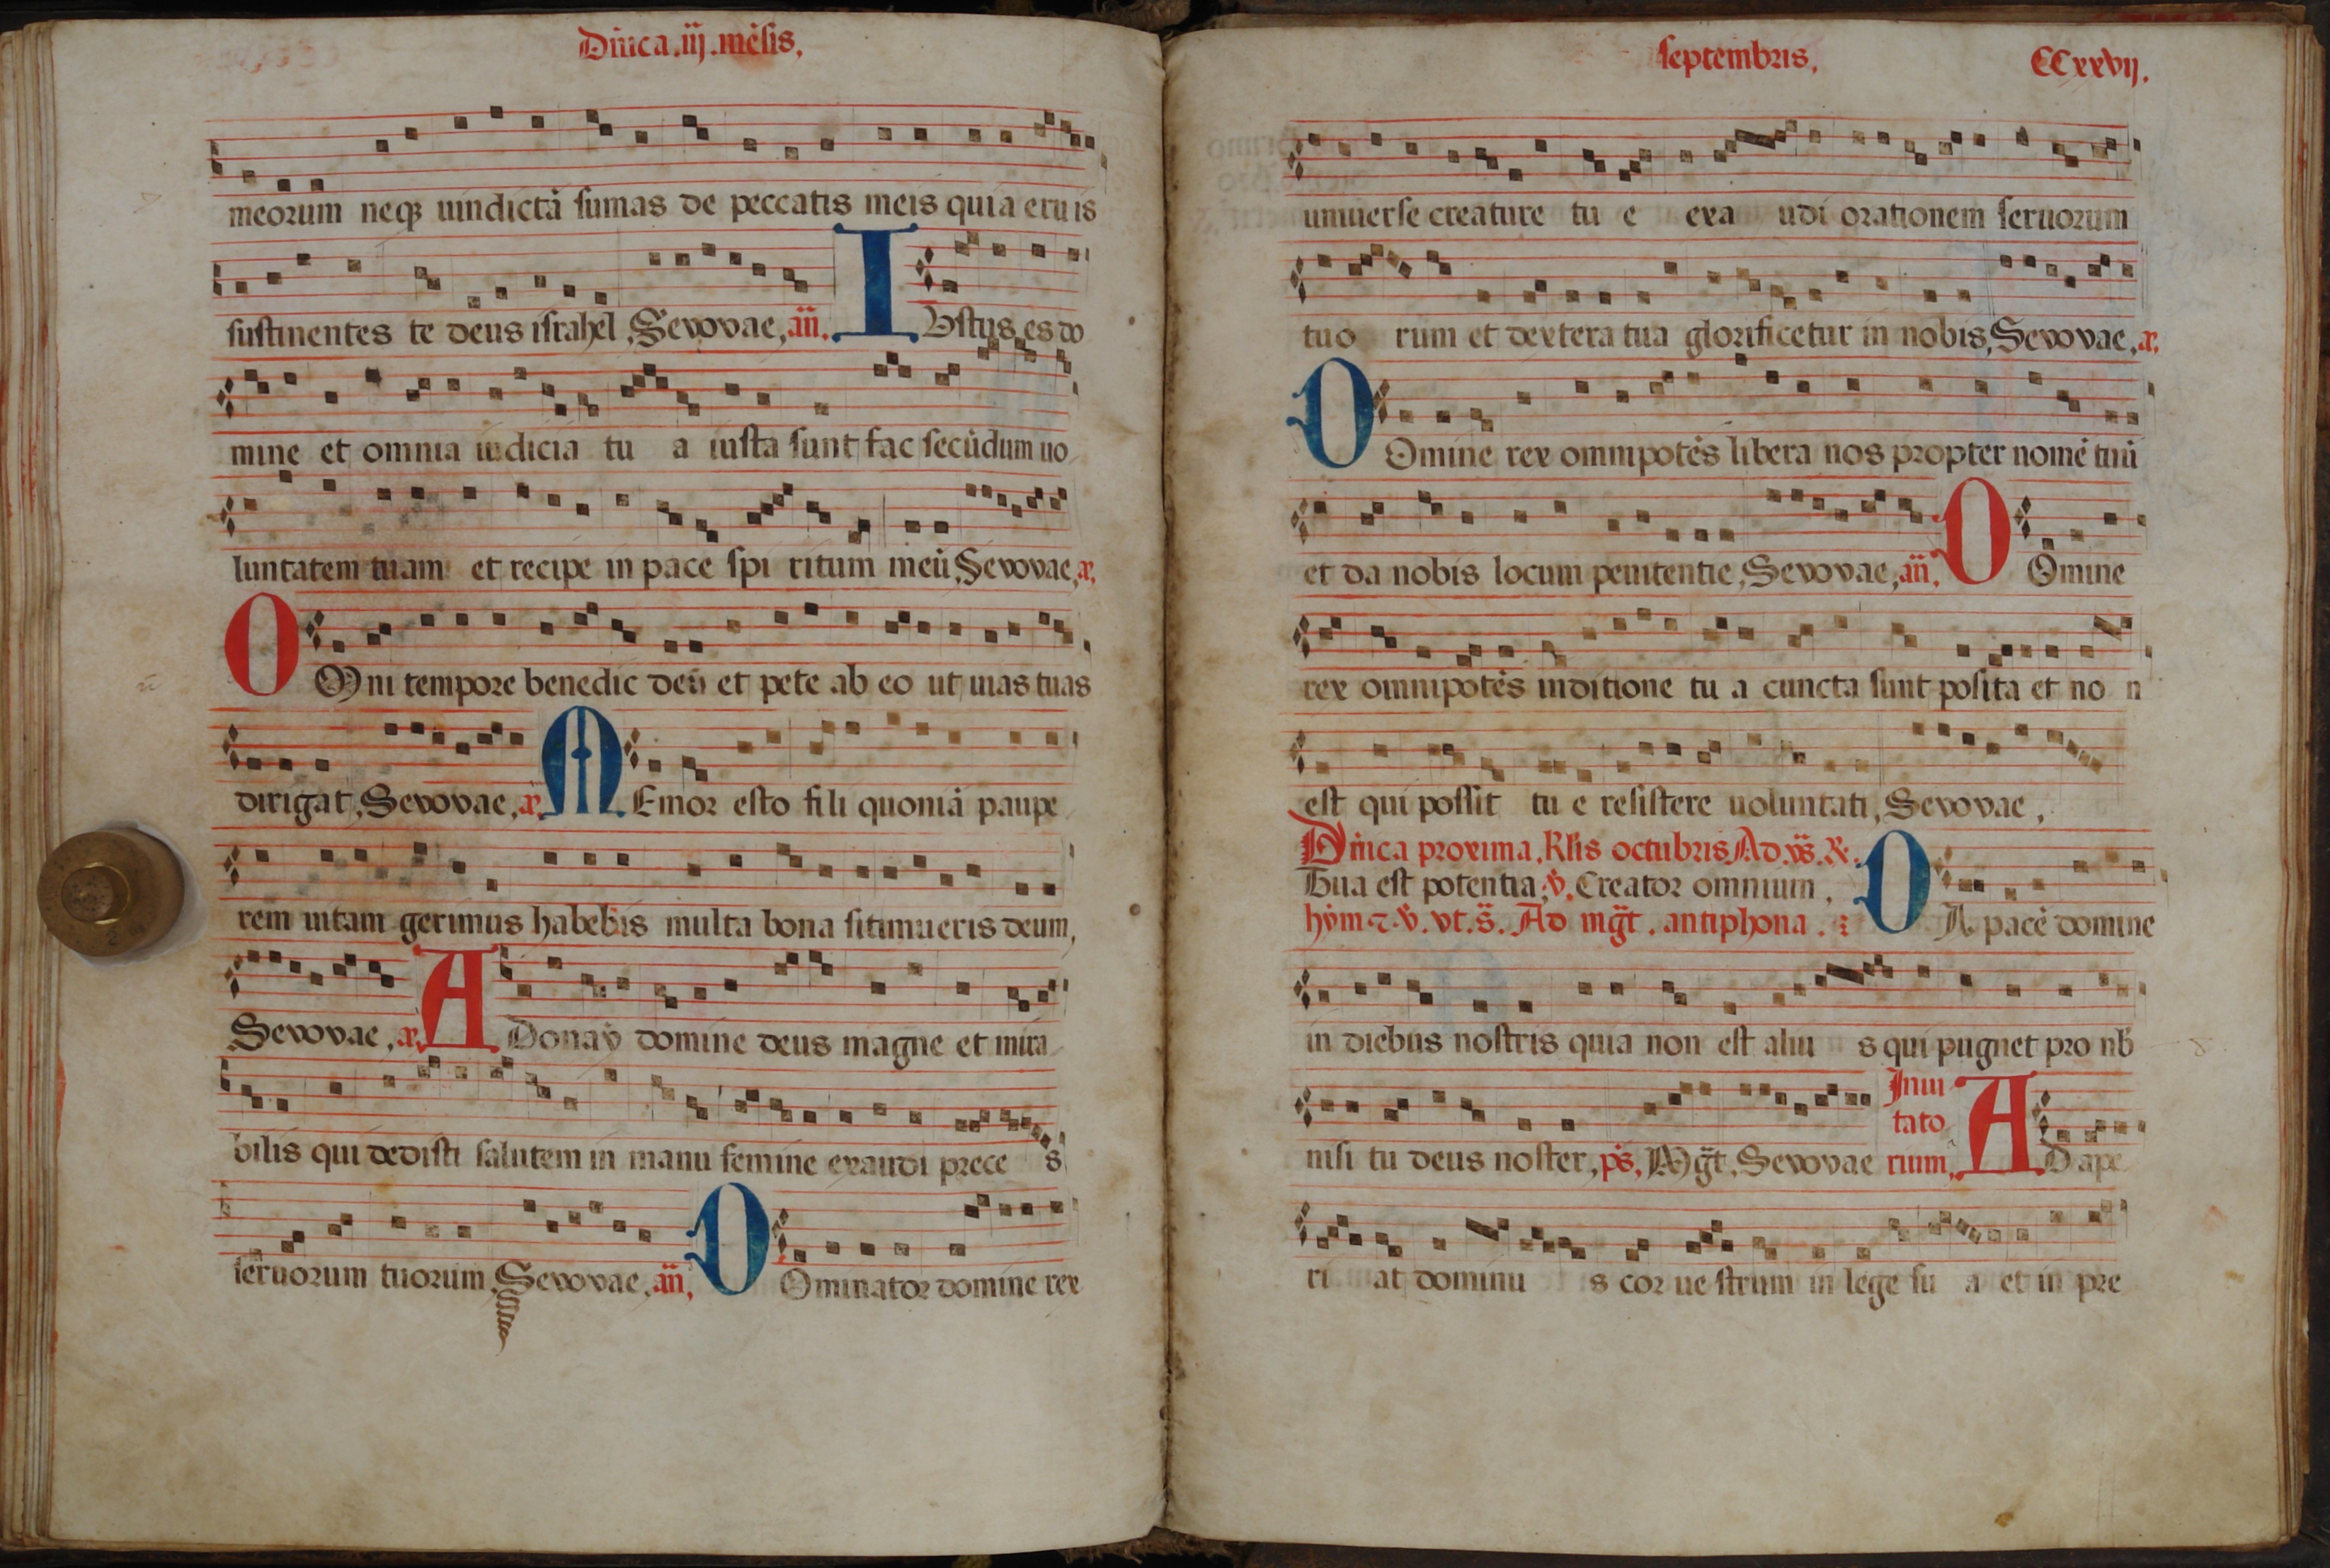 Dn̄ica .iij. mēsis,
meorum neqȝ uindictā sumas de peccatis meis quia eruis
sustinentes te deus israhel, Sevovae, an̄. I Vstus es do
mine et omnia iudicia tu a iusta sunt fac secūdum uo
luntatem tuam et recipe in pace spi ritum meū, Sevovae, a.
O Mni tempore benedic deū et pete ab eo ut uias tuas
dirigat, Sevovae, a. M Emor esto fili quoniā paupe
rem uitam gerimus habebis multa bona si timueris deum,
Sevovae, a. A Donay domine deus magne et mira
bilis qui dedisti salutem in manu femine exaudi prece s
seruorum tuorum, Sevovae, an̄, D Ominator domine rex
septembris, CCxxvij.
uniuerse creature tu e exa udi orationem seruorum
tuo rum et dextera tua glorificetur in nobis, Sevovae, a.
D Omine rex omnipotēs libera nos propter nomē tuū
et da nobis locum penitentie, Sevovae, an̄, D Omine
rex omnipotēs in ditione tu a cuncta sunt posita et no n
est qui possit tu e resistere uoluntati, Sevovae,
Dn̄ica proxima. kl̄is octubris Ad. vs̄. ℞.
Tua est potentia, ℣. Creator omnium,
hym̄. ⁊. ℣. vt. s̄. Ad mḡt. antiphona. D A pacē domine
in diebus nostris quia non est aliu s qui pugnet pro nb̄
nisi tu deus noster, ps̄, Mḡt, Sevovae
Inui
tato
rium, A D ape
ri at dominu s cor ue strum in lege su a et in pre